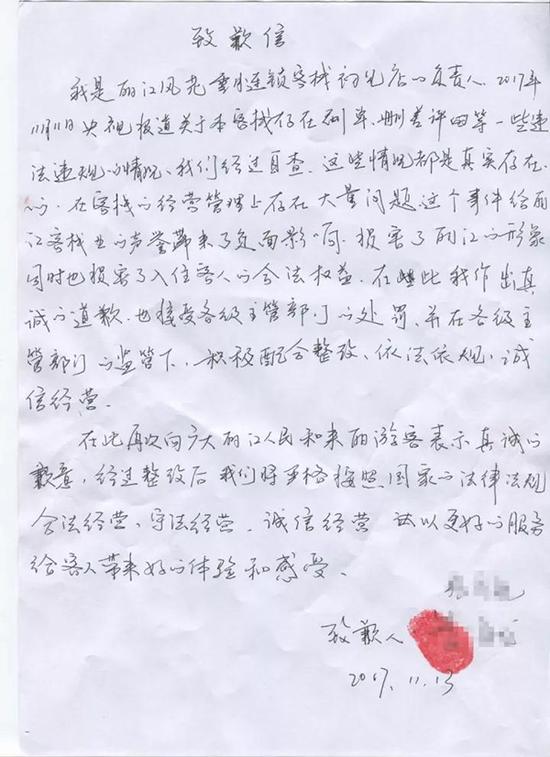 致歉信
我是丽江风花雪月连锁客栈初见店的负责人.2017年
11月11日央视报道关于本客栈存在刷单、删差评曲等一些违
法违规的情况、我们经过自查.这些情况都是真实存在
的.在客栈的经营管理上存在大量问题.这个事件给丽
江客栈业的声誉带来了负面影响.损害了丽江的形象
同时也损害了入住客人的合法权益.在此我作出真
诚的道歉.也接受各级主管部门的处罚、并在各级主
管部门的监管下、积极配合整改、依法依规,诚
信经营.
在此再次向广大丽江人民和来丽游客表示真诚的
歉意,经过整改后我们将严格按照国家的法律法规
合法经营、守法经营.诚信经营 达以更好的服务
给客人带来好的体验和感受、
致歉人
2017.11.13